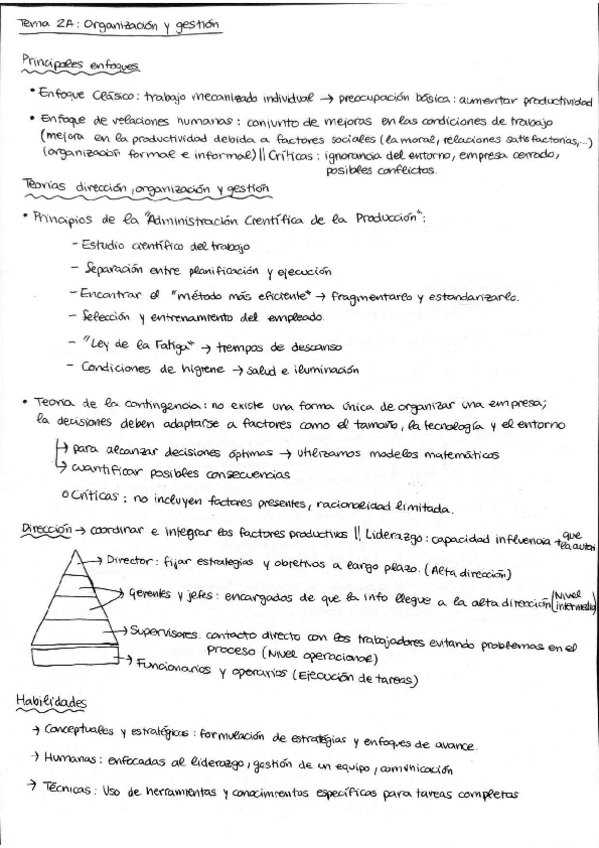 Tema 2A: Organización y gestión
Principales enfoques
• Enfoque Clásico: trabajo mecanizado individual → preocupación básica: aumentar productividad
• Enfoque de relaciones humanas: conjunto de mejoras en las condiciones de trabajo
(mejora en la productividad debida a factores sociales (la moral, relaciones satisfactorias,...)
(organización formal e informal) || Críticas: ignorancia del entorno, empresa cerrada,
posibles conflictos.
Teorías dirección, organización y gestión
• Principios de la "Administración Científica de la Producción":
- Estudio científico del trabajo
- Separación entre planificación y ejecución
- Encontrar el "método más eficiente" → fragmentarlo y estandarizarlo.
- Selección y entrenamiento del empleado.
- "Ley de la Fatiga" → tiempos de descanso
- Condiciones de higiene → salud e iluminación
• Teoría de la contingencia: no existe una forma única de organizar una empresa;
la decisiones deben adaptarse a factores como el tamaño, la tecnología y el entorno
↳ para alcanzar decisiones óptimas → utilizamos modelos matemáticos
↳ cuantificar posibles consecuencias
o Críticas: no incluyen factores presentes, racionalidad limitada.
Dirección → coordinar e integrar los factores productivos || Liderazgo: capacidad influencia + que la autori
→ Director: fijar estrategias y objetivos a largo plazo. (Alta dirección)
→ Gerentes y jefes: encargados de que la info llegue a la alta dirección (Nivel intermedio)
→ Supervisores: contacto directo con los trabajadores evitando problemas en el
proceso (Nivel operacional)
→ Funcionarios y operarios (Ejecución de tareas)
Habilidades
→ Conceptuales y estratégicas: formulación de estrategias y enfoques de avance.
→ Humanas: enfocadas al liderazgo, gestión de un equipo, comunicación
→ Técnicas: Uso de herramientas y conocimientos específicos para tareas completas